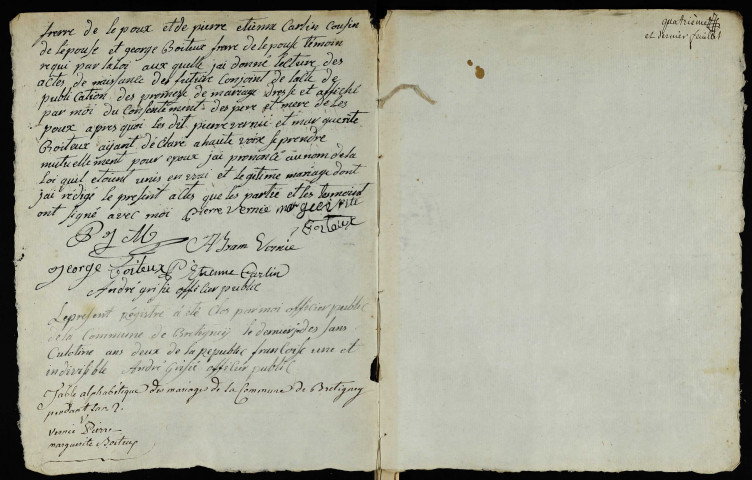 frere de lepoux et de pierre etienne Carlin Cousin
de lepouse et george Boiteux frere de lepouse temoin
requi par la loi aux quelle jai donné lecture des
actes de naissance des futeur Conjoint de lacte de
publication des promesse de mariage dressé et affiché
par moi du Consentement des pere et mere de lez
poux apres quoi les dit pierre vernié et marguerite
Boiteux aijant déclare a haute voix se prendre
mutuellement pour epoux jai prononcé au nom de la
loi quil etoient unis en vrai et legitime mariage dont
jai rédigé le present actes que les partie et les temoins
ont signé avec moi Pierre Vernie marguerite
Boiteux
P J M Abram Vernié
george Boiteux P Etienne Carlin
André grisié officier public
Le present régistre a été Clos par moi officier public
de la Commune de Bretigney le dernier des sans
Culotine ans deux de la republic francoise une et
indivisible André Grisié officier public
Table alphabétique des mariages de la Commune de Bretigney
pendant lan 2.
V
vernié Pierre
marguerite Boiteux
quatrième
et dernier feuillet